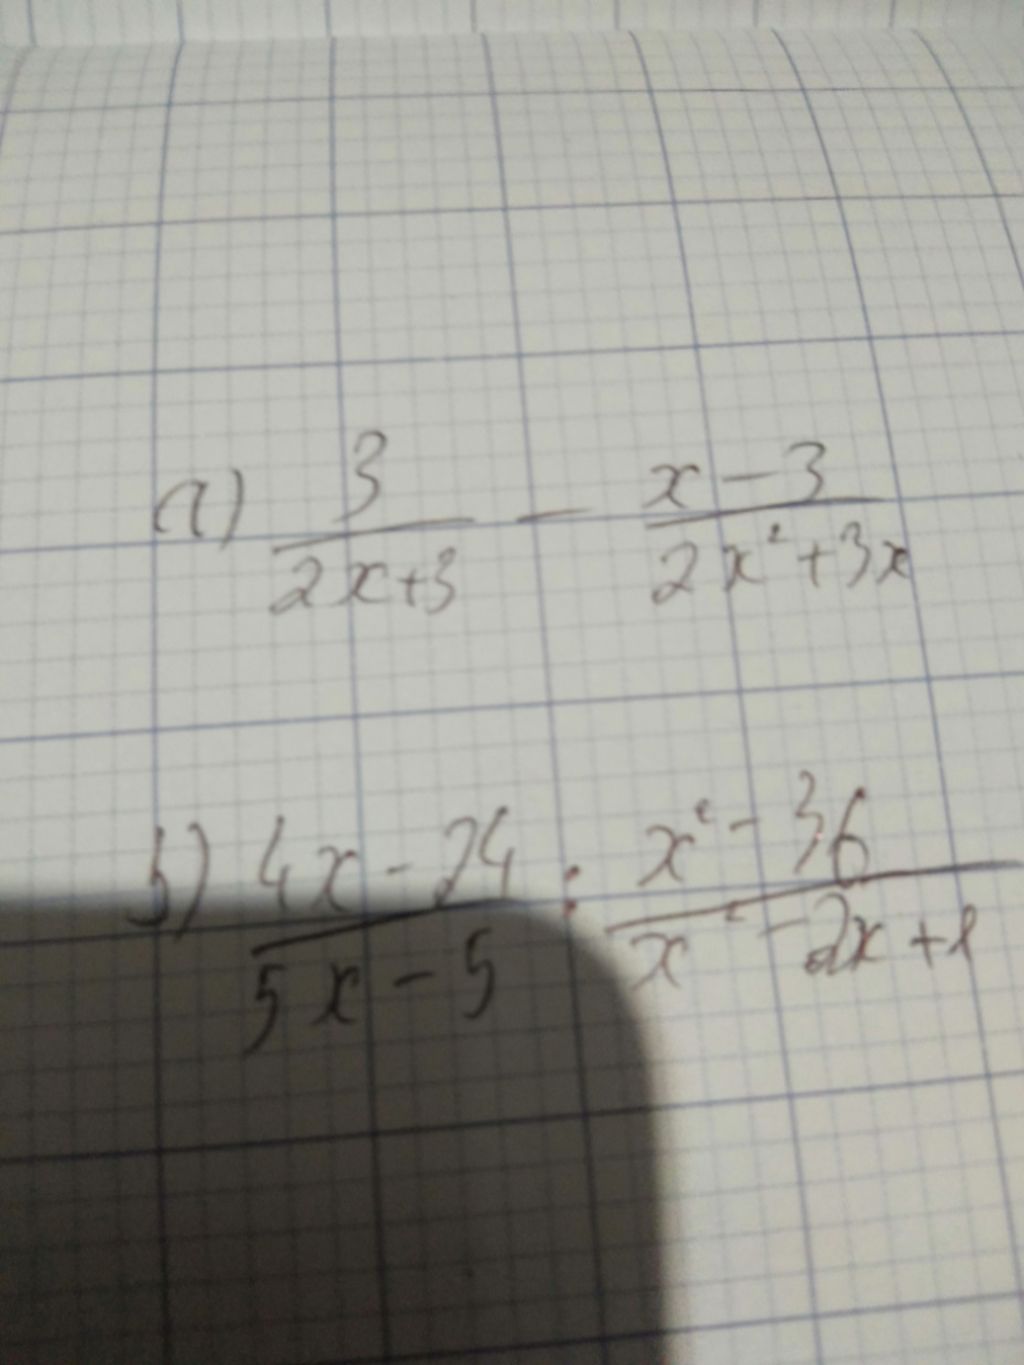 a) 3/(2x+3) - (x-3)/(2x²+3x)
b) (4x-24)/(5x-5) : (x²-36)/(x²-2x+1)